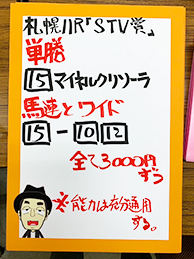 札幌11R『STV賞』
単勝
15 マイネルクリソーラ
馬連とワイド
15-10 12
全て3000円
ずつ
※能力は充分通用
する。